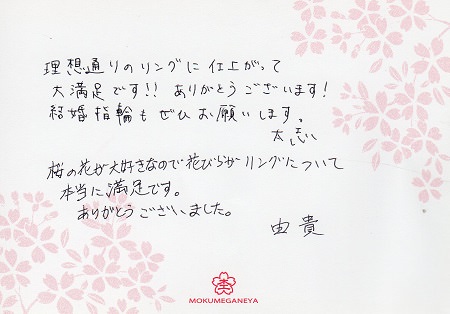 理想通りのリングに仕上がって
大満足です!! ありがとうございます!
結婚指輪もぜひお願いします。
太志
桜の花が大好きなので花びらがリングについて
本当に満足です。
ありがとうございました。
由貴
MOKUMEGANEYA